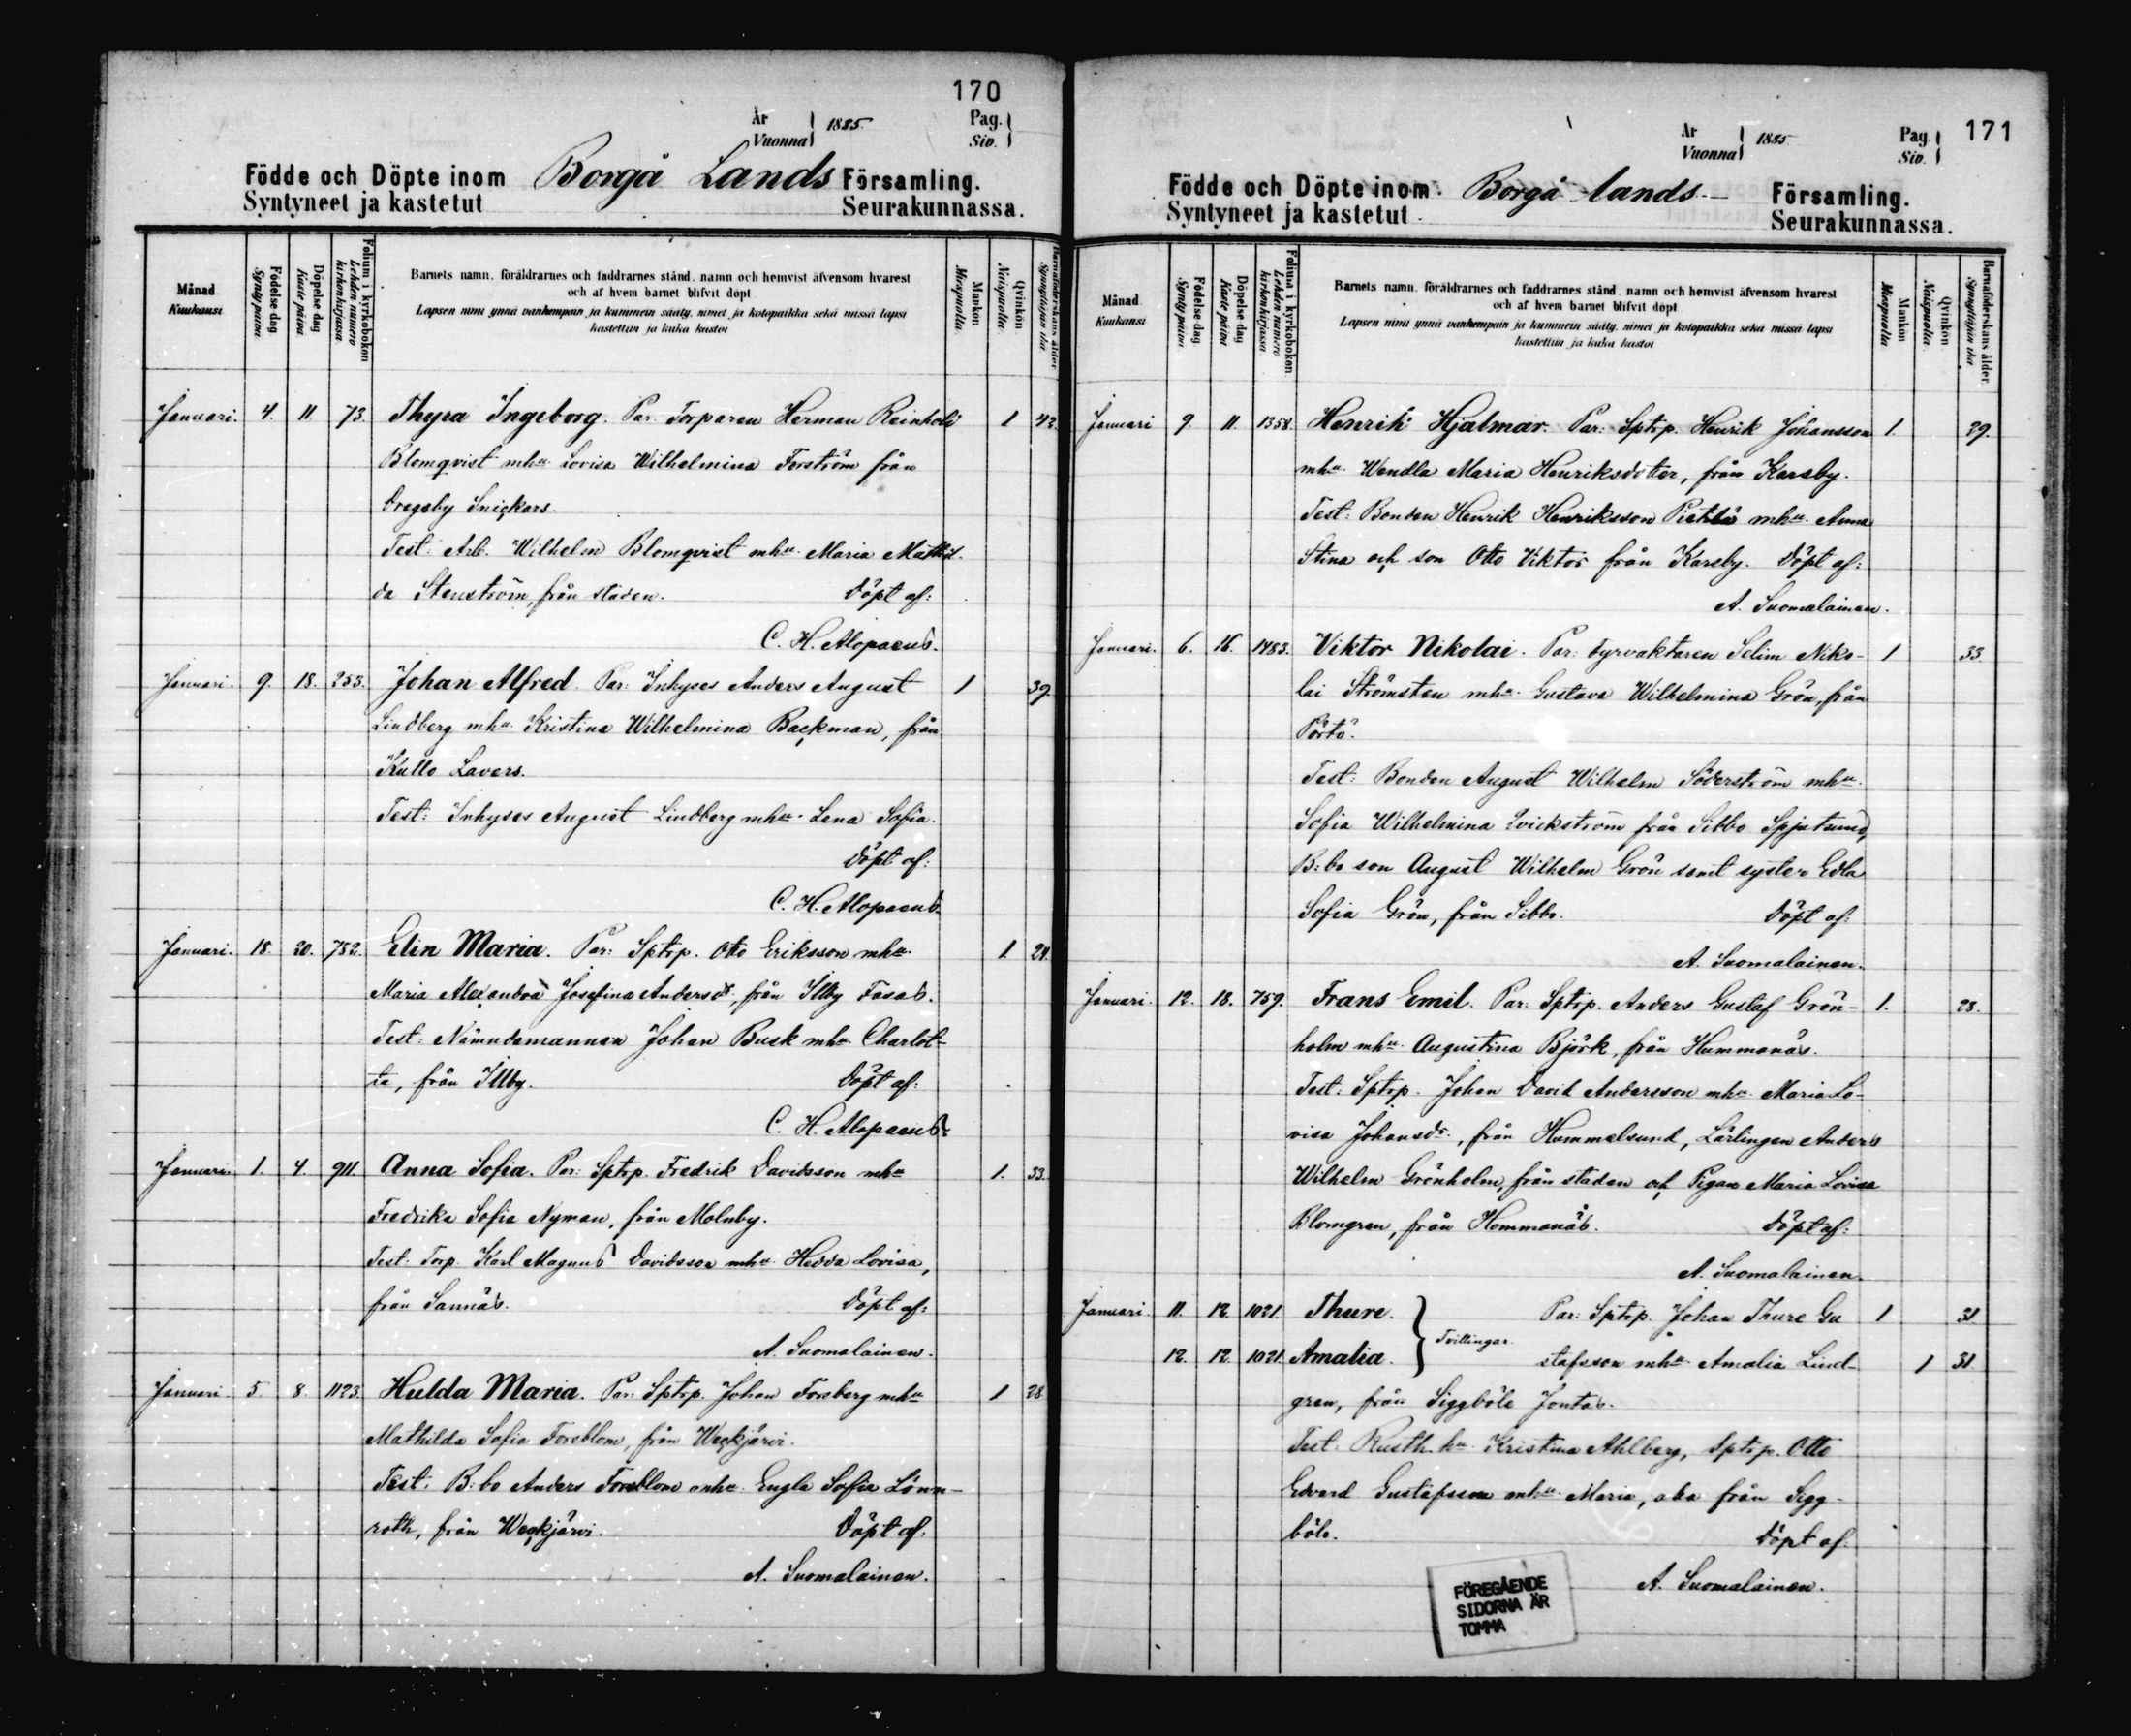 170
År
Vuonna
1885.
Pag.
Siv.
Födde och Döpte inom Borgå Lands Församling.
Syntyneet ja kastetut Seurakunnassa.
Månad
Kuukausi
Födelse dag
Synty päivä
Döpelse dag
Kaste päivä
Folium i kyrkoboken
Lehden numero kirkonkirjassa
Barnets namn, föräldrarnes och faddrarnes stånd, namn och hemvist äfvensom hvarest
och af hvem barnet blifvit döpt
Lapsen nimi ynnä vanhempain ja kummein sääty, nimet ja kotopaikka sekä missä lapsi
kastettiin ja kuka kastoi
Mankön
Miespuolia
Qvinkön
Naispuolia
Barnaföderskans ålder
Synnyttäjän ikä
Januari. 4. 11 73. Thyra Ingeborg. Par. Torparen Herman Reinhold 1 42.
Blomqvist mhu Lovisa Wilhelmina Forström från
Dregsby Snickars.
Test: Arb. Wilhelm Blomqvist mhu Maria Mathil-
da Stenström, från staden. Döpt af:
C. H. Alopaeus.
Januari. 9. 18. 253. Johan Alfred. Par: Inhyses Anders August 1 39
Lindberg mhu Kristina Wilhelmina Backman, från
Kullo Lavers.
Test: Inhyses August Lindberg mhu Lena Sofia.
Döpt af:
C. H. Alopaeus.
Januari. 18. 20. 752. Elin Maria. Par: Sptrp. Otto Eriksson mhu 1. 24.
Maria Alexandra Josefina Andersdr, från Illby Fasas.
Test: Nämndemannen Johan Busk mhu Charlot-
ta, från Illby. Döpt af:
C. H. Alopaeus.
Januari. 1. 4. 911. Anna Sofia. Par: Sptrp. Fredrik Davidsson mhu 1. 33.
Fredrika Sofia Nyman, från Molnby.
Test: Torp. Karl Magnus Davidsson mhu Hedda Lovisa,
från Sannäs. Döpt af:
A. Suomalainen.
Januari 5 8. 1123. Hulda Maria. Par: Sptrp. Johan Forsberg mhu 1 28
Mathilda Sofia Forsblom, från Weckjärvi.
Test: B:bo Anders Forsblom mhu Engla Sofia Lönn-
roth, från Weckjärvi. Döpt af:
A. Suomalainen.
171
År
Vuonna
1885
Pag.
Siv.
Födde och Döpte inom Borgå lands Församling.
Syntyneet ja kastetut Seurakunnassa.
Månad
Kuukausi
Födelse dag
Synty päivä
Döpelse dag
Kaste päivä
Folium i kyrkoboken
Lehden numero kirkonkirjassa
Barnets namn, föräldrarnes och faddrarnes stånd, namn och hemvist äfvensom hvarest
och af hvem barnet blifvit döpt
Lapsen nimi ynnä vanhempain ja kummein sääty, nimet ja kotopaikka sekä missä lapsi
kastettiin ja kuka kastoi
Mankön
Miespuolia
Qvinkön
Naispuolia
Barnaföderskans ålder.
Synnyttäjän ikä
Januari 9. 11. 1358. Henrik Hjalmar. Par: Sptrp. Henrik Johansson 1. 29.
mhu Wendla Maria Henriksdotter, från Karsby.
Test: Bonden Henrik Henriksson mhu Anna
Stina och son Otto Viktor från Karsby. Döpt af:
A. Suomalainen.
Januari. 6. 16. 1483. Viktor Nikolai. Par: Fyrvaktaren Selim Niko- 1 33.
lai Strömsten mhu Gustava Wilhelmina Grön, från
Pörtö.
Test: Bonden August Wilhelm Söderström mhu
Sofia Wilhelmina Qvickström från Sibbo Spjutsund,
B:bo son August Wilhelm Grön samt syster Edla
Sofia Grön, från Sibbo. Döpt af:
A. Suomalainen.
Januari. 12. 18. 759. Frans Emil. Par: Sptrp. Anders Gustaf Grön- 1. 28.
holm mhu Augustina Björk, från Hummanäs.
Test: Sptrp. Johan David Andersson mhu Maria Lo-
visa Johansdr., från Hummelsund, Lärlingen Anders
Wilhelm Grönholm, från staden och Pigan Maria Lovisa
Blomgren, från Hommanäs. Döpt af:
A. Suomalainen.
Januari. 11. 12. 1021. Thure. Par: Sptrp. Johan Thure Gu 1 31
Tvillingar.
12. 12. 1021 Amalia. stafsson mhu Amalia Lind- 1 31.
gren, från Siggböle Jontas.
Test: Rusth. hu Kristina Ahlberg, Sptrp. Otto
Edvard Gustafsson mhu Maria, alla från Sigg-
böle. Döpt af:
A. Suomalainen.
FÖREGÅENDE
SIDORNA ÄR
TOMMA